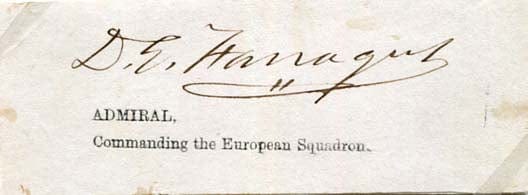 D. G. Farragut
ADMIRAL,
Commanding the European Squadron.